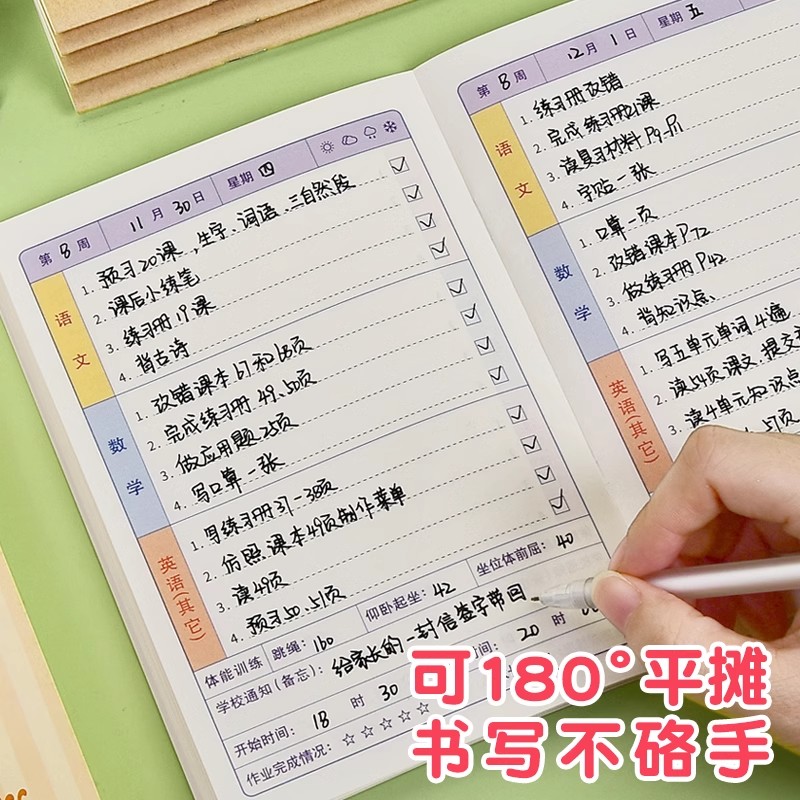 第 8 周 11 月 30 日 星期 四
语文
1. 预习20课，生字、词语、三自然段
2. 课后小练笔
3. 练习册19课
4. 背古诗
数学
1. 改错课本67和68页
2. 完成练习册49、50页
3. 做应用题25页
4. 写口算一张
英语(其它)
1. 写练习册37-38页
2. 仿照课本49页制作菜单
3. 读49页
4. 预习50、51页
体能训练 跳绳: 160 仰卧起坐: 42 坐位体前屈: 40
学校通知(备忘): 给家长的一封信签字带回
开始时间: 18 时 30 时间: 20 时
作业完成情况: ☆☆☆☆☆
第 8 周 12 月 1 日 星期 五
语文
1. 练习册改错
2. 完成练习册21课
3. 读复习材料
4. 字帖一张
数学
1. 口算一页
2. 改错课本P72
3. 做练习册P42
4. 背知识点
英语(其它)
1. 写五单元单词4遍
2. 读54页课文 提交
3. 读4单元知识点
可180°平摊
书写不硌手